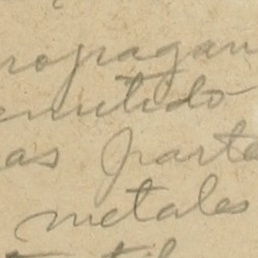 propagan
emitido
as parte
metales